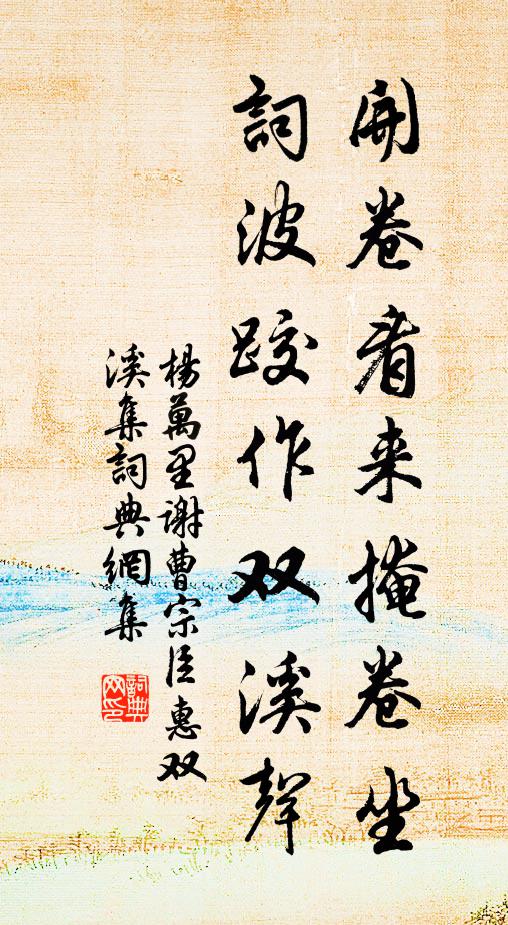 開卷看来掩卷坐
詞波跤作双溪聲
楊萬里谢曹宗臣惠双
溪集詞典網集
詞典网印